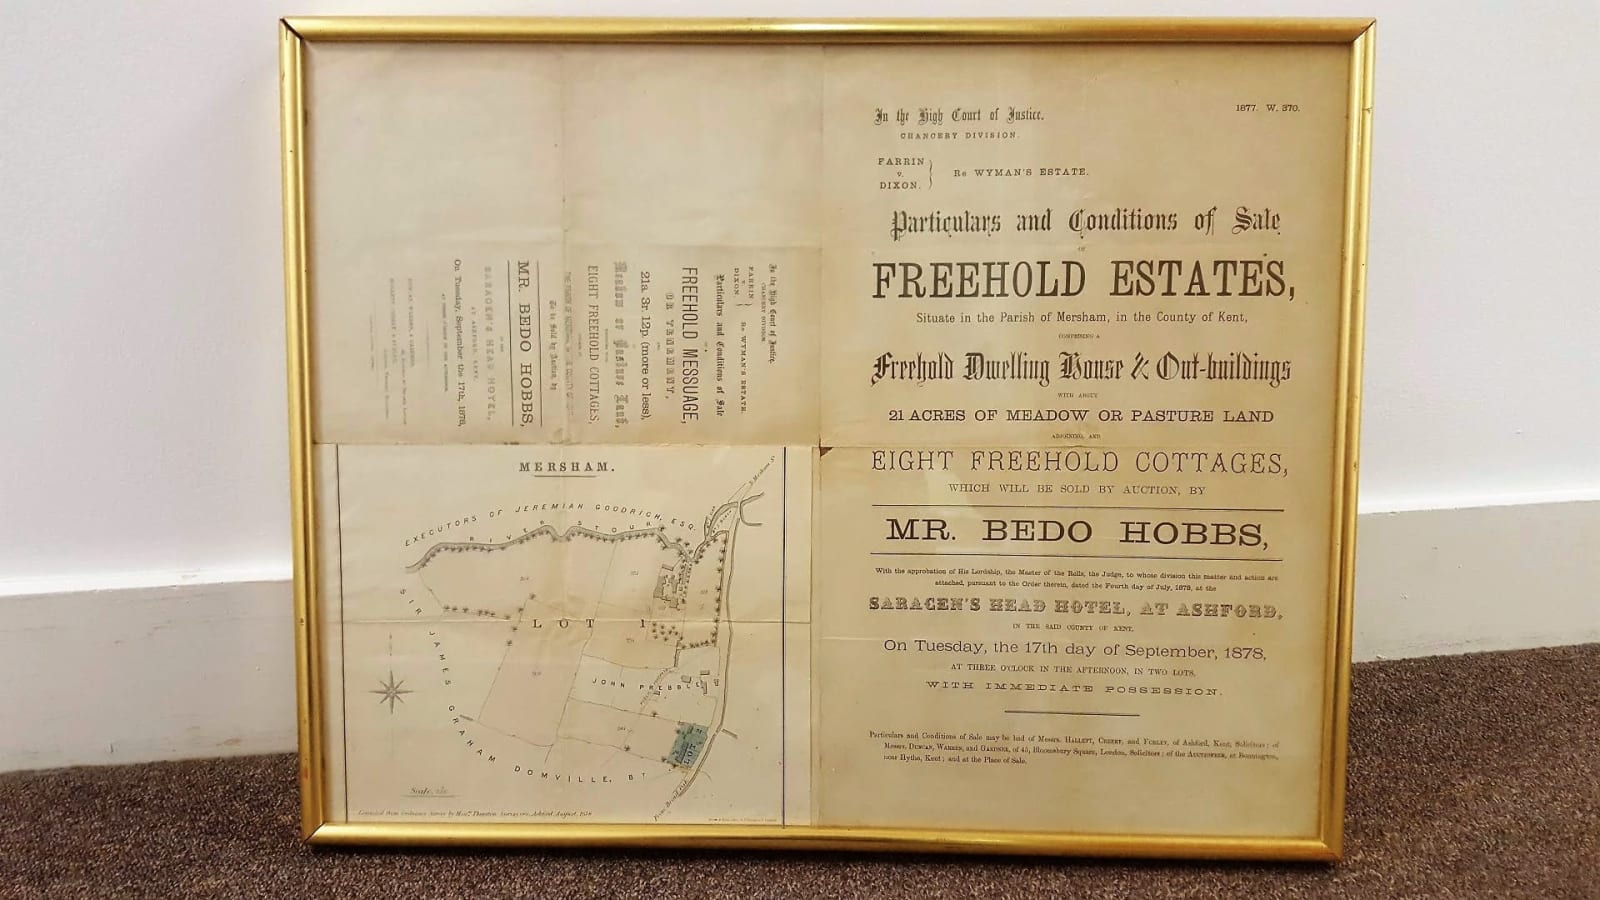 In the High Court of Justice.
CHANCERY DIVISION.
1877. W. 370.
FARRIN
v.
DIXON.
Re WYMAN'S ESTATE.
Particulars and Conditions of Sale
OF
FREEHOLD ESTATES,
Situate in the Parish of Mersham, in the County of Kent,
COMPRISING A
Freehold Dwelling House & Out-buildings
WITH ABOUT
21 ACRES OF MEADOW OR PASTURE LAND
ADJOINING, AND
EIGHT FREEHOLD COTTAGES,
WHICH WILL BE SOLD BY AUCTION, BY
MR. BEDO HOBBS,
With the approbation of His Lordship, the Master of the Rolls, the Judge, to whose division this matter and action are
attached, pursuant to the Order therein, dated the Fourth day of July, 1878, at the
SARACEN'S HEAD HOTEL, AT ASHFORD,
IN THE SAID COUNTY OF KENT,
On Tuesday, the 17th day of September, 1878,
AT THREE O'CLOCK IN THE AFTERNOON, IN TWO LOTS,
WITH IMMEDIATE POSSESSION.
Particulars and Conditions of Sale may be had of Messrs. HALLETT, CREERY, and FURLEY, of Ashford, Kent, Solicitors; of
Messrs. DUNCAN, WARREN, and GARDNER, of 45, Bloomsbury Square, London, Solicitors; of the AUCTIONEER, at Bonnington,
near Hythe, Kent; and at the Place of Sale.
In the High Court of Justice.
CHANCERY DIVISION.
FARRIN
v.
DIXON
Re WYMAN'S ESTATE.
Particulars and Conditions of Sale
OF A
FREEHOLD MESSUAGE,
OR TENEMENT,
21a. 3r. 12p. (more or less),
Meadow or Pasture Land,
EIGHT FREEHOLD COTTAGES,
To be Sold by Auction, by
MR. BEDO HOBBS,
AT THE
SARACEN'S HEAD HOTEL,
AT ASHFORD, KENT,
On Tuesday, September the 17th, 1878,
AT THREE O'CLOCK IN THE AFTERNOON.
MERSHAM.
EXECUTORS OF JEREMIAH GOODRICH, ESQ.
RIVER STOUR
LOT 1
JOHN PREBBLE
SIR JAMES GRAHAM DOMVILLE, BT
LOT
Scale